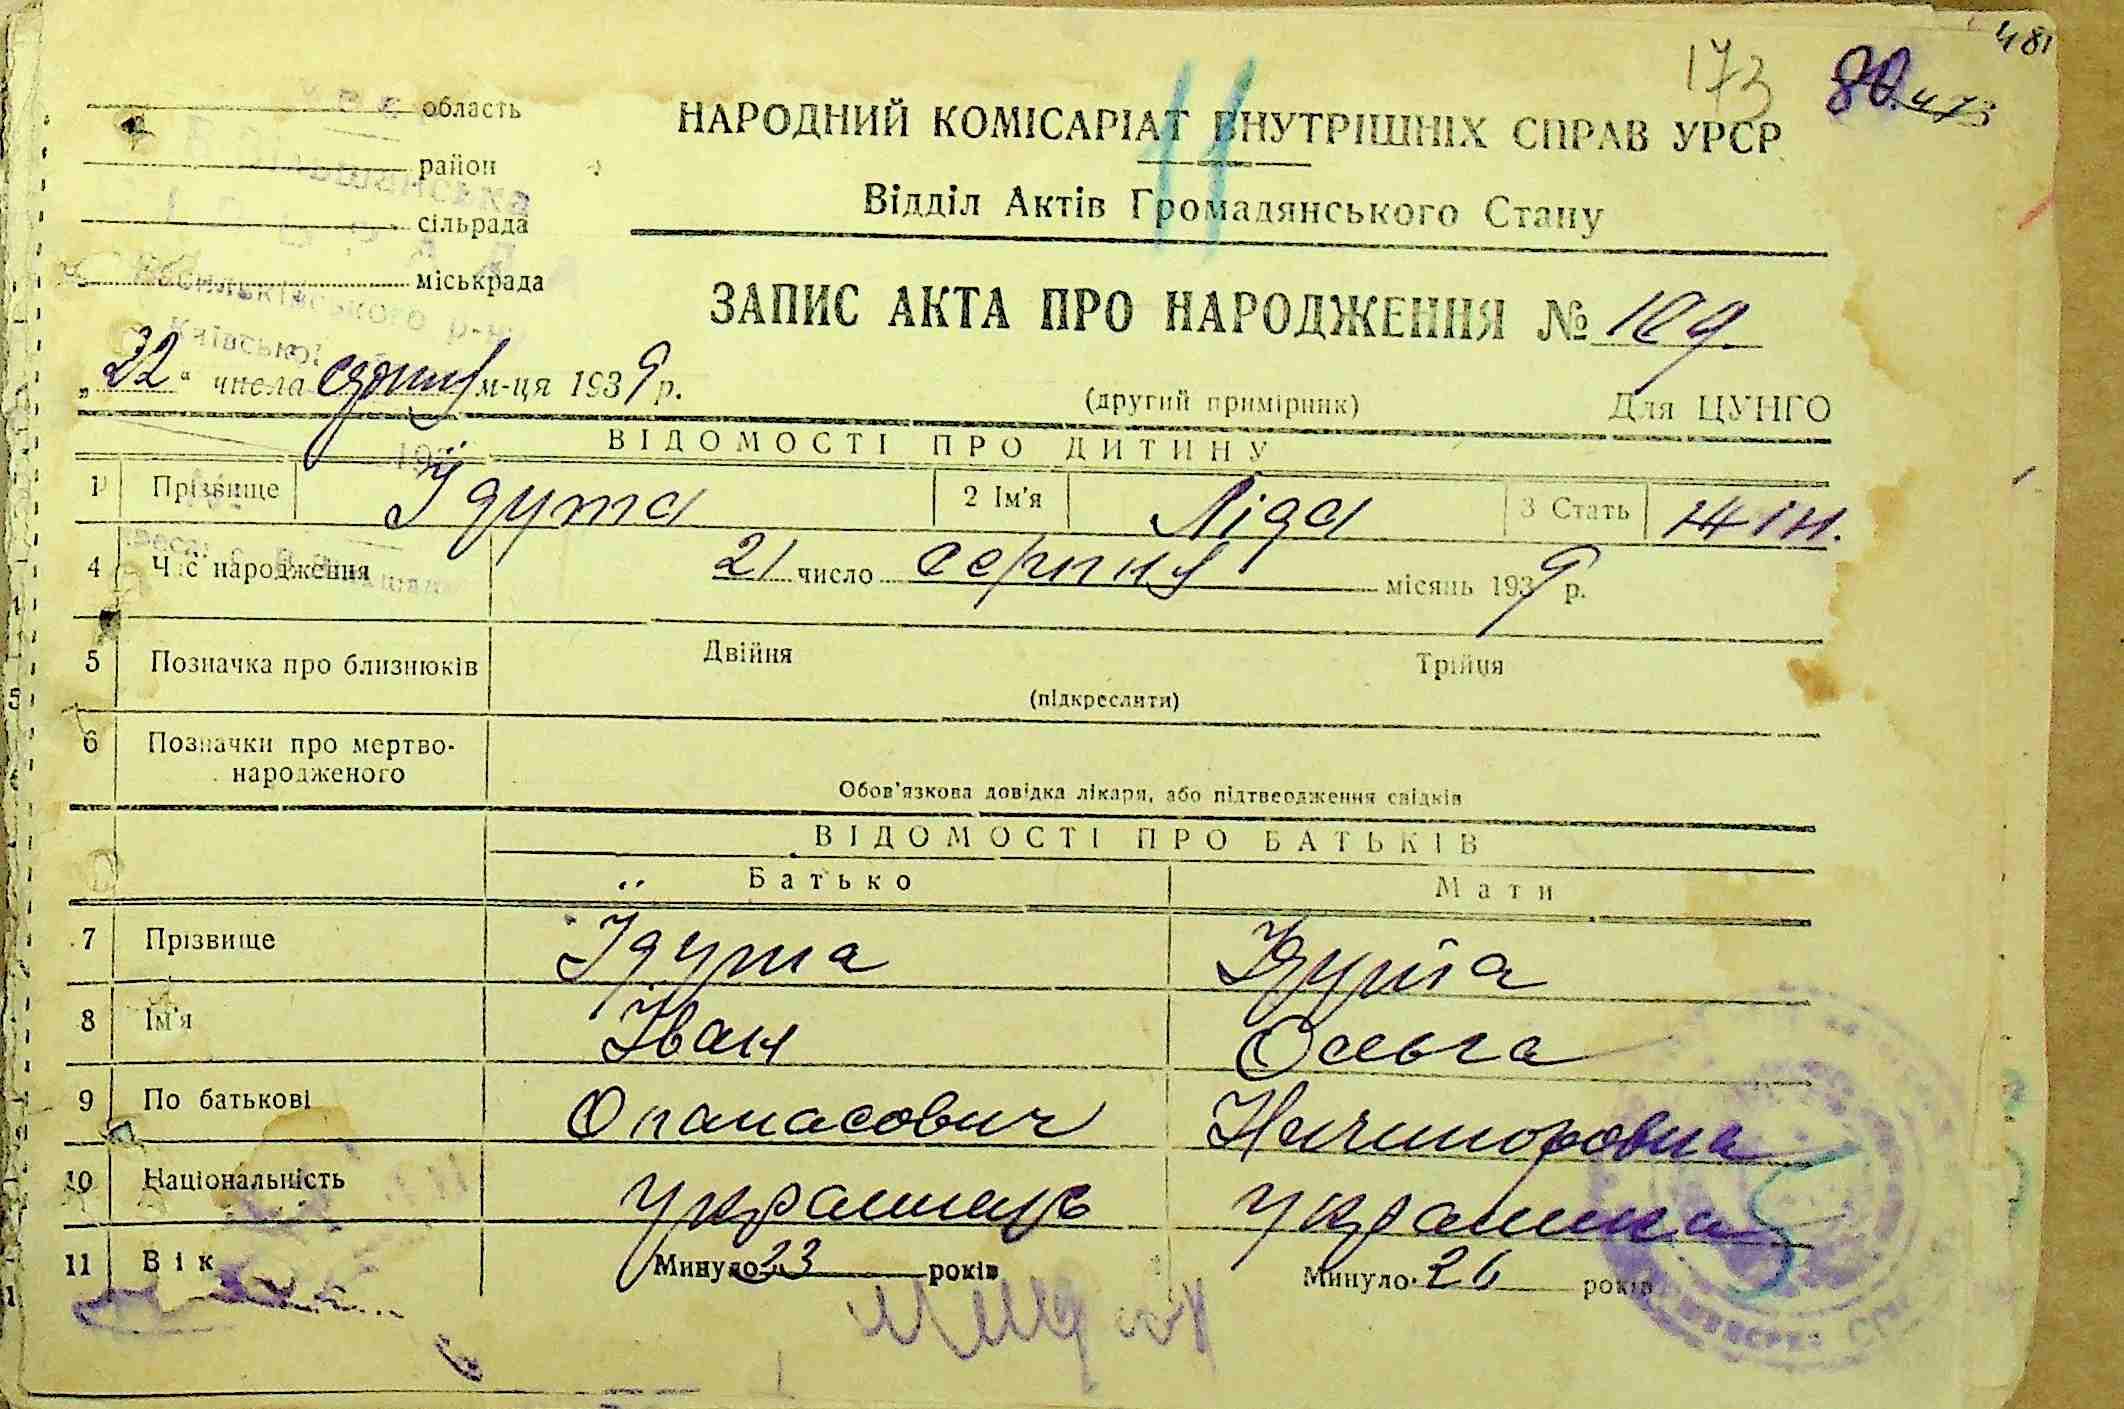 481
173 80 473
область
НАРОДНИЙ КОМІСАРІАТ ВНУТРІШНІХ СПРАВ УРСР
11
район
Відділ Актів Громадянського Стану
сільрада
міськрада
Васильківського р-ну
Київської
ЗАПИС АКТА ПРО НАРОДЖЕННЯ № 109.
„22“ числа серпня м-ця 1939 р.
(другий примірник) Для ЦУНГО
ВІДОМОСТІ ПРО ДИТИНУ
1 Прізвище Їдута 2 Ім'я Ліда 3 Стать жін.
4 Час народження 21 число серпня місяць 1939 р.
5 Позначка про близнюків Двійня Трійця
(підкреслити)
6 Позначки про мертво-
народженого
Обов'язкова довідка лікаря, або підтвердження свідків
ВІДОМОСТІ ПРО БАТЬКІВ
Батько Мати
7 Прізвище Їдута Їдута
8 Ім'я Іван Ольга
9 По батькові Опанасович Ничипоровна
10 Національність Українець Українка
11 Вік Минуло 23 років Минуло 26 років